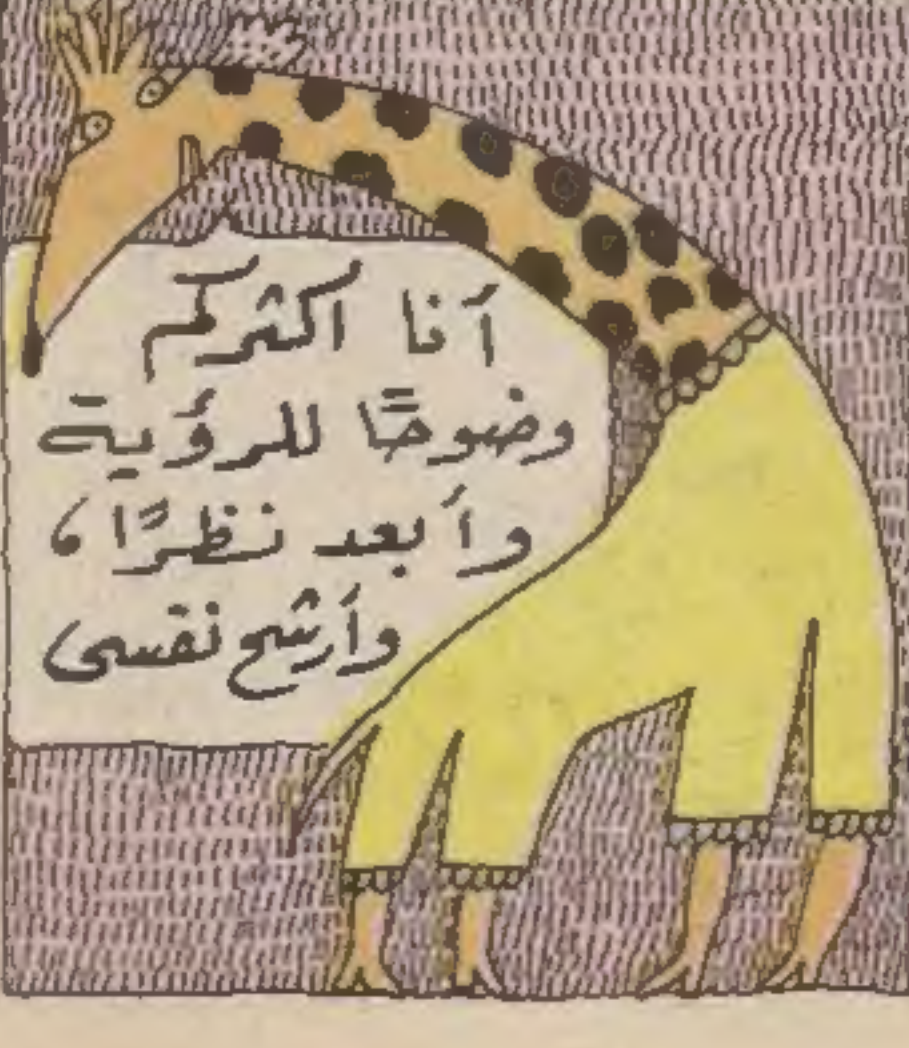 أنا اكثركم
وضوحًا للرؤية
وأبعد نظرًا،
وأرشح نفسى